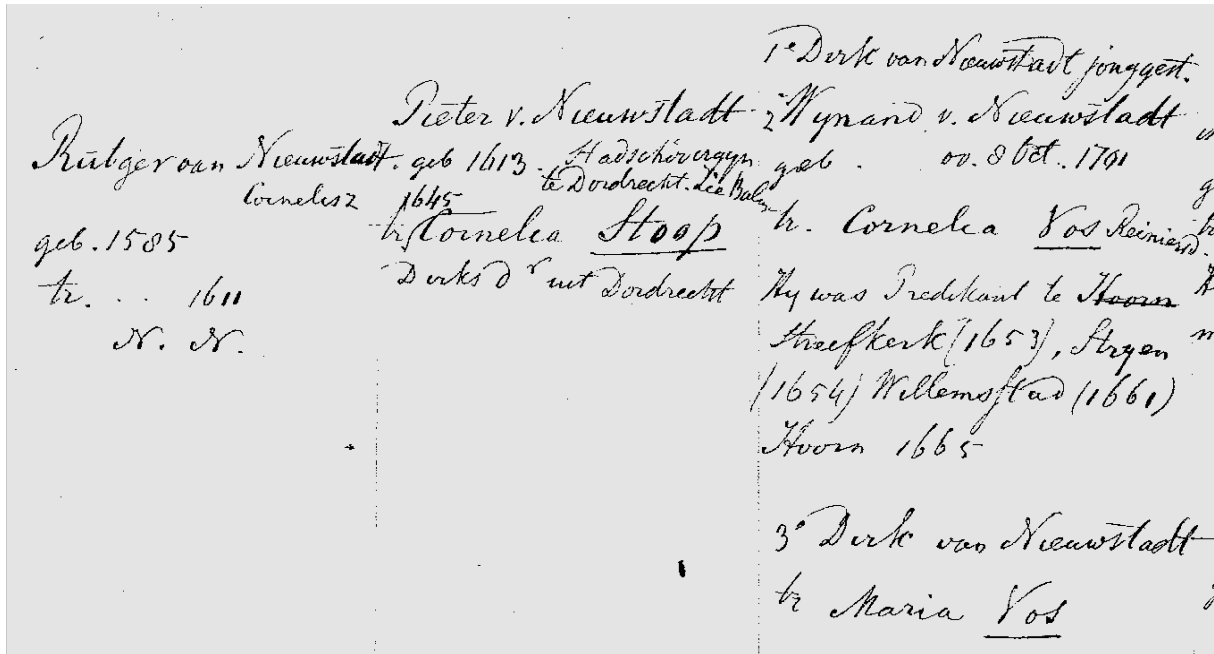 Rutger van Nieuwstadt.
Cornelisz
geb. 1585
tr. . . 1611
N. N.
Pieter v. Nieuwstadt
geb 1613.
te Dordrecht. Zie
1645
tr. Cornelia Stoop
Dirks dr uit Dordrecht
1e Dirk van Nieuwstadt jong gest.
2e Wynand v. Nieuwstadt
geb . ov. 8 Oct. 1701
tr. Cornelia Vos Reiniersd.
Hy was Predikant te Hoorn
Streefkerk (1653), Stryen
(1654) Willemstad (1661)
Hoorn 1665
3e Dirk van Nieuwstadt
tr Maria Vos